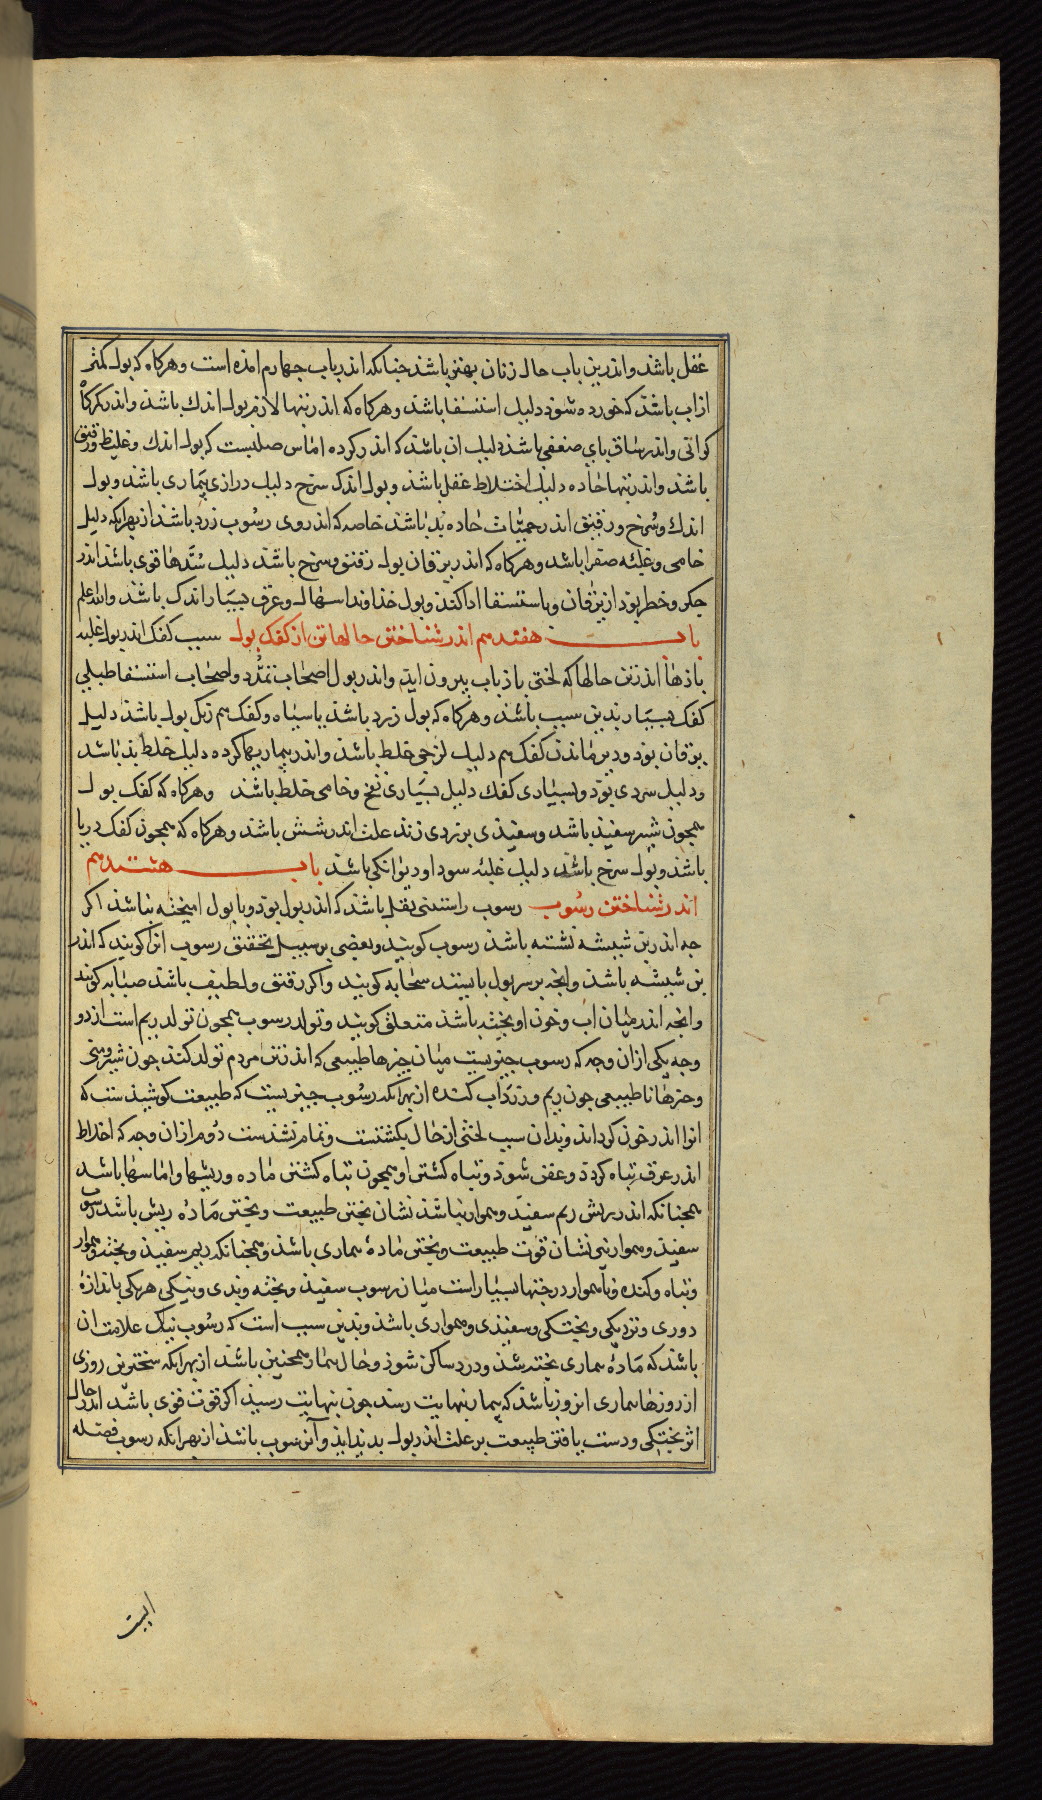 عقل باشد و اندرین باب حال زنان بهتر باشد چنانکه اندر باب چهارم امده است وهرکاه که بول کمتر
ازاب باشد که خورده شود دلیل استسقا باشد وهرکاه که اندر تبها لازم بول اندک باشد و اندر کرکاه
کرانی واندر ساق پای ضعفی باشد دلیل ان باشد که اندر کرده اماس صلبست که بول اندک و غلیظ و رقیق
باشد واندر تبها حاده دلیل اختلاط عقل باشد و بول اندک سرخ دلیل درازی بیماری باشد و بول
اندک و سرخ و رقیق اندر حمیات حاده بد باشد خاصه که اندر وی رسوب زرد باشد ازبهرانکه دلیل
خامی و غلبه صفرا باشد و هرکاه که اندر یرقان بول رقیق و سرخ باشد دلیل سدهّا قوی باشد اندر
جکر و خطر بود از یرقان و باستسقا ادا کند و بول خداوند اسهال و عرق بسیار اندک باشد والله اعلم
باب هفتدهم اندر شناختن حالها تن از کفک بول سبب کفک اندر بول غلبه
بادها اندر تن حالها که لختی باذ باب بیرون اید و اندر بول اصحاب تمدد و اصحاب استسقا طبلی
کفک بسیار بدین سبب باشد و هرکاه که بول زرد باشد یا سیاه و کفک هم رنک بول باشد دلیل
یرقان بود و دیر ماندن کفک هم دلیل لزجی خلط باشد و اندر بیماریها کرده دلیل خلط بد باشد
و دلیل سردی بود و بسیاری کفک دلیل بسیاری نفخ و خامی خلط باشد و هرکاه که کفک بول
همچون شیر سفید باشد و سفیدی بزردی زند علت اندر شش باشد و هرکاه که همچون کفک دریا
باشد و بول سرخ باشد دلیل غلبه سودا و دیوانکی باشد باب هشتدهم
اندر شناختن رسوب رسوب راستی ثقل باشد که اندر بول بود و با بول امیخته نباشد اکر
چه اندر بن شیشه نشسته باشد رسوب کویند و بعضی بر سبیل تحقیق رسوب انرا کویند که اندر
بن شیشه باشد و انچه بر سر بول باستد سحابه کویند و اکر رقیق و لطیف باشد ضبابه کویند
وانچه اندر میان اب و خون اویخته باشد متعلق کویند و تولد رسوب همچون تولد ریم است از دو
وجه یکی ازان وجه که رسوب چیزیست میان چیزها طبیعی که اندر تن مردم تولد کند چون شیر و منی
و چیزها نا طبیعی چون ریم و زرداب کنده ازبهرانکه رسوب چیزیست که طبیعت کوشیذست که
انرا اندر خون کرداند و بدان سبب لختی از حال بکشتست و تمام نشدست دوم ازان وجه که اخلاط
اندر عرق تباه کردد و عفن شود و تباه کشتن او همچون تباه کشتن ماده و ریشها و اماسها باشد
همچنانکه اندر ریش ریم سفید و هموار باشد نشان پختن طبیعت و پختن ماده ریش باشد رسوب
سفید و هموار نیز نشان قوت طبیعت و پختن ماده بیماری باشد و همچنانکه ریم سفید و پخته و هموار
و تباه و کنده و ناهموار درجتها بسیار است میان رسوب سفید و پخته و بدی و نیکی هریکی باندازه
دوری و نزدیکی و پختکی و سفیدی و همواری باشد و بدین سبب است که رسوب نیک علامت ان
باشد که ماده بیماری پخته شد و درد ساکن شود و حال بیمار همچنین باشد ازبهرانکه سختترین روزی
از روزها بیماری انروز باشد که بیمار بنهایت رسد چون بنهایت رسید اکر قوت قوی باشد اندر حال
اثر پختکی و دست یافتن طبیعت بر علت اندر بول بدید اید و ان رسوب باشد ازبهرانکه رسوب فضله
ایست